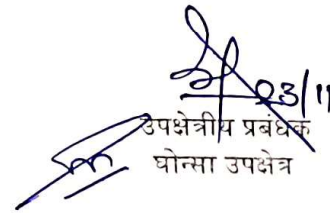 23/11
उपक्षेत्रीय प्रबंधक
घोन्सा उपक्षेत्र